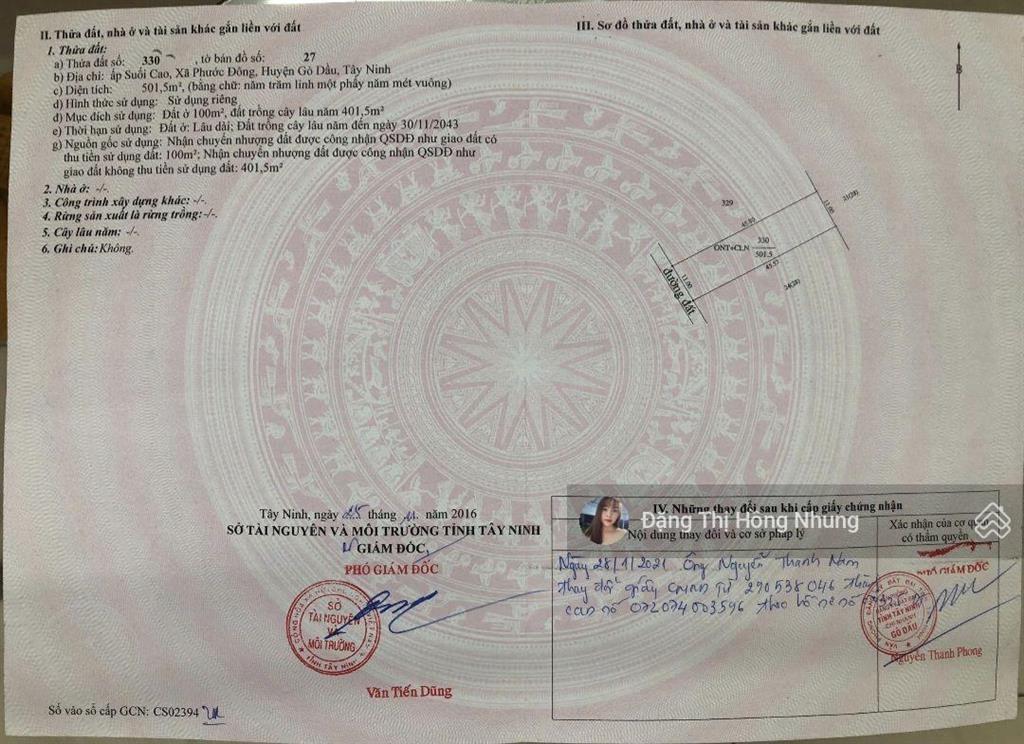 II. Thửa đất, nhà ở và tài sản khác gắn liền với đất
1. Thửa đất:
a) Thửa đất số: 330, tờ bản đồ số: 27
b) Địa chỉ: ấp Suối Cao, Xã Phước Đông, Huyện Gò Dầu, Tây Ninh
c) Diện tích: 501,5m², (bằng chữ: năm trăm linh một phẩy năm mét vuông)
d) Hình thức sử dụng: Sử dụng riêng
đ) Mục đích sử dụng: Đất ở 100m², đất trồng cây lâu năm 401,5m²
e) Thời hạn sử dụng: Đất ở: Lâu dài; Đất trồng cây lâu năm đến ngày 30/11/2043
g) Nguồn gốc sử dụng: Nhận chuyển nhượng đất được công nhận QSDĐ như giao đất có
thu tiền sử dụng đất: 100m²; Nhận chuyển nhượng đất được công nhận QSDĐ như
giao đất không thu tiền sử dụng đất: 401,5m²
2. Nhà ở: -/-.
3. Công trình xây dựng khác: -/-.
4. Rừng sản xuất là rừng trồng:-/-.
5. Cây lâu năm: -/-.
6. Ghi chú: Không.
III. Sơ đồ thửa đất, nhà ở và tài sản khác gắn liền với đất
B
329
45.89
11.00
31(28)
ONT+CLN 330
501.5
45.57
11.00
34(28)
đường đất
Tây Ninh, ngày 25 tháng 11 năm 2016
SỞ TÀI NGUYÊN VÀ MÔI TRƯỜNG TỈNH TÂY NINH
GIÁM ĐỐC,
PHÓ GIÁM ĐỐC
SỞ
TÀI NGUYÊN
VÀ
MÔI TRƯỜNG
TỈNH TÂY NINH
Văn Tiến Dũng
Số vào sổ cấp GCN: CS02394
IV. Những thay đổi sau khi cấp giấy chứng nhận
Nội dung thay đổi và cơ sở pháp lý
Xác nhận của cơ quan
có thẩm quyền
Đặng Thị Hồng Nhung
Ngày 28/1/2021 Ông Nguyễn Thanh Nam
thay đổi giấy CMND từ 290538046 thành
căn số 072074003596 theo hồ sơ số
PHÓ GIÁM ĐỐC
TỈNH TÂY NINH
CHI NHÁNH
GÒ DẦU
Nguyễn Thanh Phong